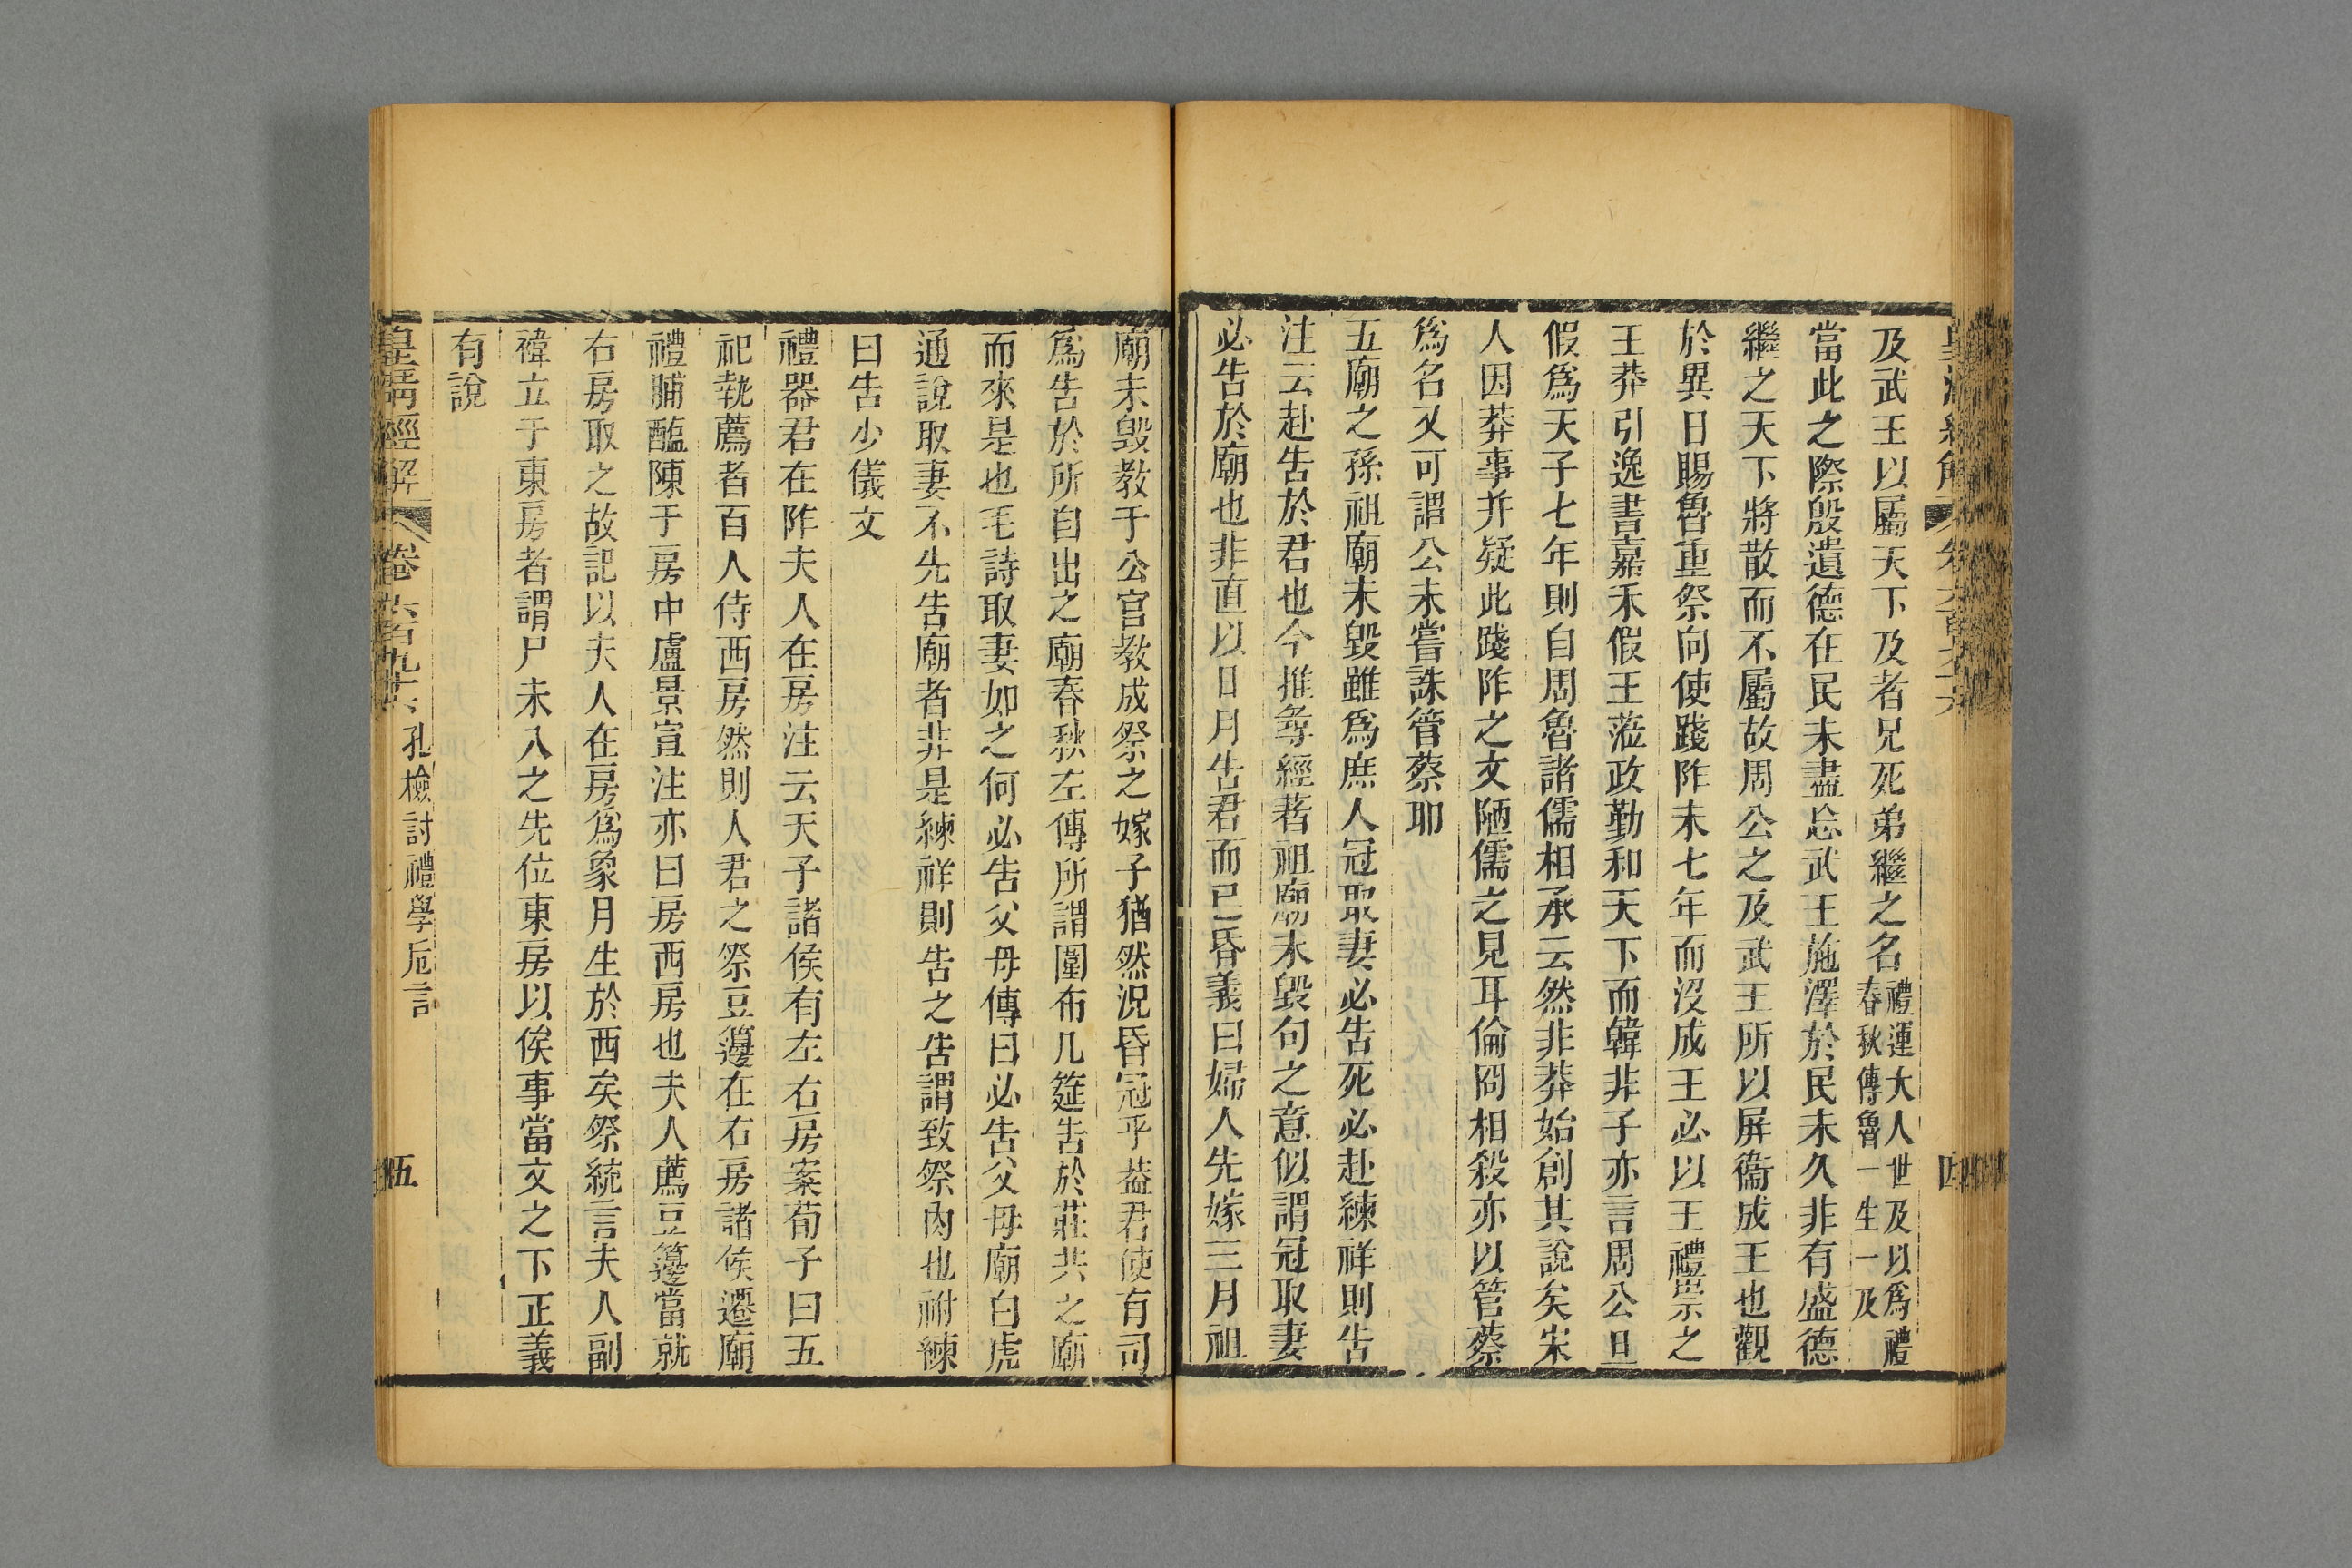 及武王以屬天下及者兄死弟繼之名禮運大人世及以爲禮春秋傳魯一生一及
當此之際殷遺德在民未盡忘武王施澤於民未久非有盛德
繼之天下將散而不屬故周公之及武王所以屏衞成王也觀
於異日賜魯重祭向使踐阼未七年而沒成王必以王禮崇之
王莽引逸書嘉禾假王蒞政勤和天下而韓非子亦言周公旦
假爲天子七年則自周魯諸儒相承云然非莽始創其說矣宋
人因莽事并疑此踐阼之文陋儒之見耳倫囧相殺亦以管蔡
爲名又可謂公未嘗誅管蔡耶
五廟之孫祖廟未毀雖爲庶人冠取妻必告死必赴練祥則告
注云赴告於君也今推尋經著祖廟未毀句之意似謂冠取妻
必告於廟也非直以日月告君而已昏義曰婦人先嫁三月祖
廟未毀教于公宫教成祭之嫁子猶然況昏冠乎葢君使有司
爲告於所自出之廟春秋左傳所謂圍布几筵告於莊共之廟
而來是也毛詩取妻如之何必告父母傳曰必告父母廟白虎
通說取妻不先告廟者非是練祥則告之告謂致祭肉也祔練
曰告少儀文
禮器君在阼夫人在房注云天子諸侯有左右房案荀子曰五
祀執薦者百人侍西房然則人君之祭豆籩在右房諸侯遷廟
禮脯醢陳于房中盧景宣注亦曰房西房也夫人薦豆籩當就
右房取之故記以夫人在房爲象月生於西矣祭統言夫人副
褘立于東房者謂尸未入之先位東房以俟事當文之下正義
有說
皇淸經解
卷六百九十六
孔檢討禮學卮言
五
四